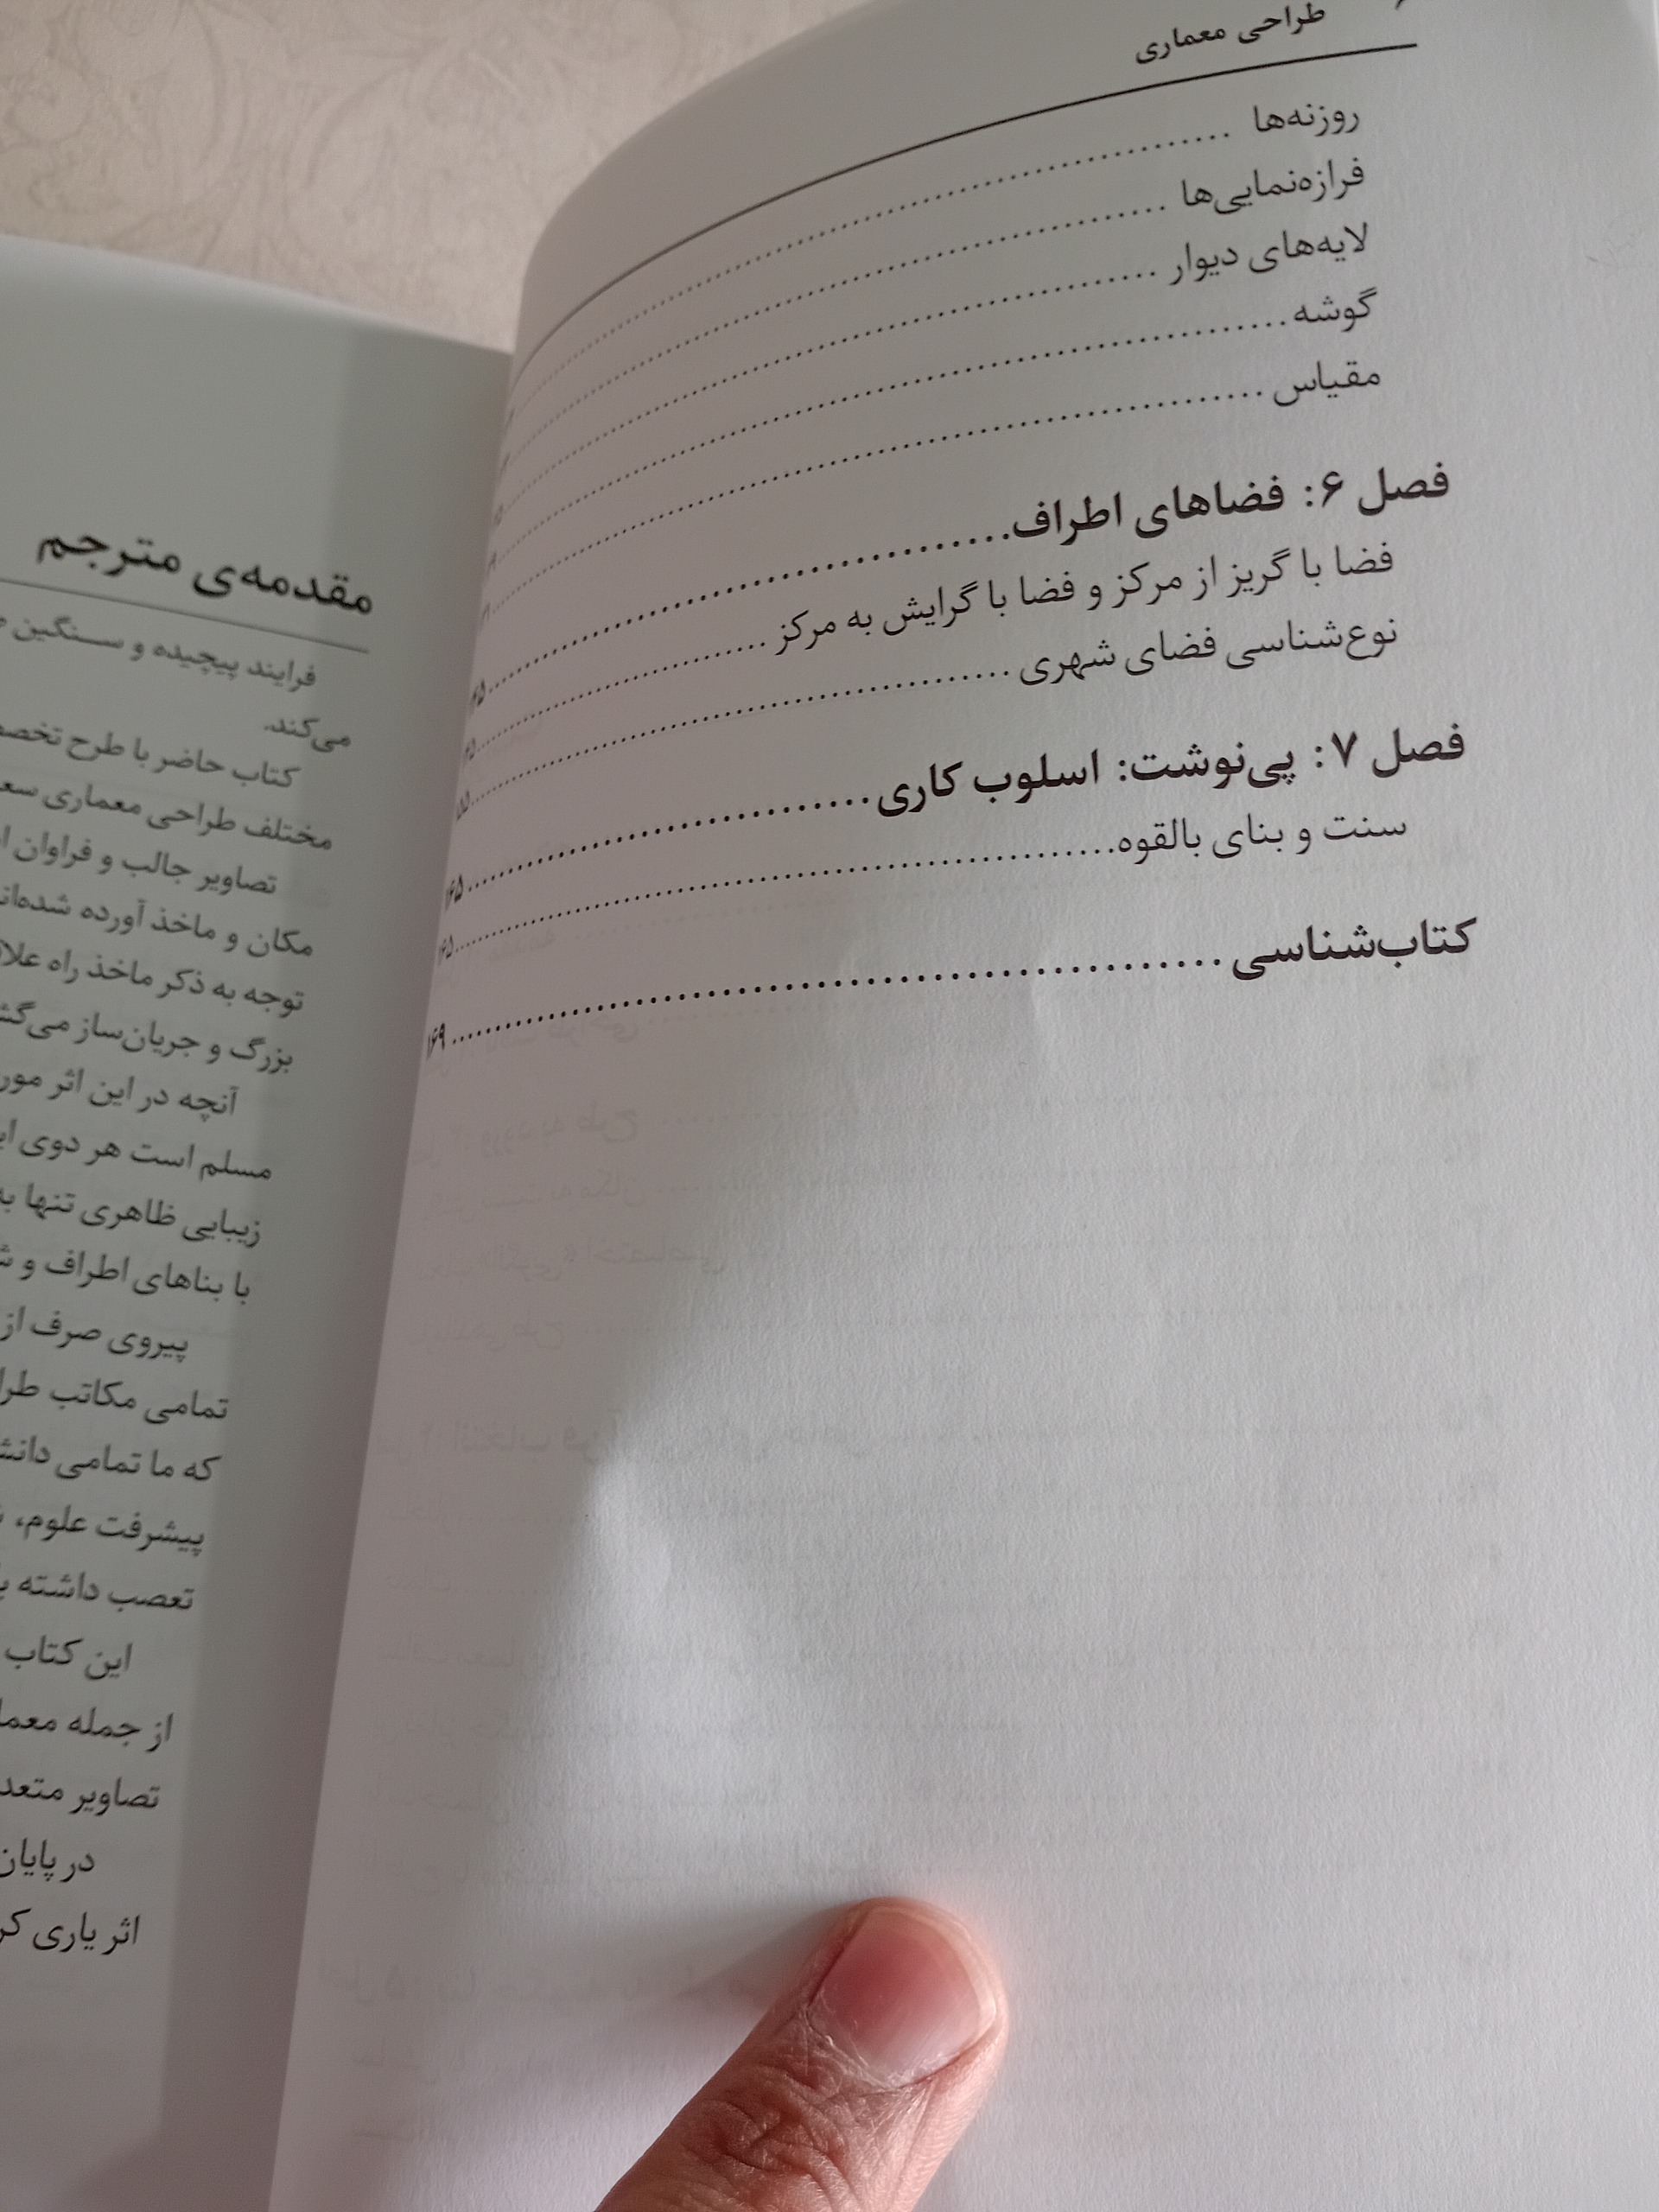 طراحی معماری
روزنه‌ها ........................
فرازه‌نمایی‌ها ........................
لایه‌های دیوار ........................
گوشه ........................
مقیاس ........................
فصل ۶: فضاهای اطراف ........................
فضا با گریز از مرکز و فضا با گرایش به مرکز ........................
نوع‌شناسی فضای شهری ........................
فصل ۷: پی‌نوشت: اسلوب کاری ........................ ۱۶۵
سنت و بنای بالقوه ........................ ۱۶۵
کتاب‌شناسی ........................ ۱۶۹
مقدمه‌ی مترجم
فرایند پیچیده و سنگین
می‌کند.
کتاب حاضر با طرح
مختلف طراحی معماری
تصاویر جالب و فراوان
مکان و ماخذ آورده
توجه به ذکر ماخذ راه
بزرگ و جریان‌ساز
آنچه در این اثر
مسلم است هر دوی
زیبایی ظاهری تنها
با بناهای اطراف و
پیروی صرف از
تمامی مکاتب
که ما تمامی
پیشرفت علوم،
تعصب داشته
این کتاب
از جمله
تصاویر
در پایان
اثر یاری